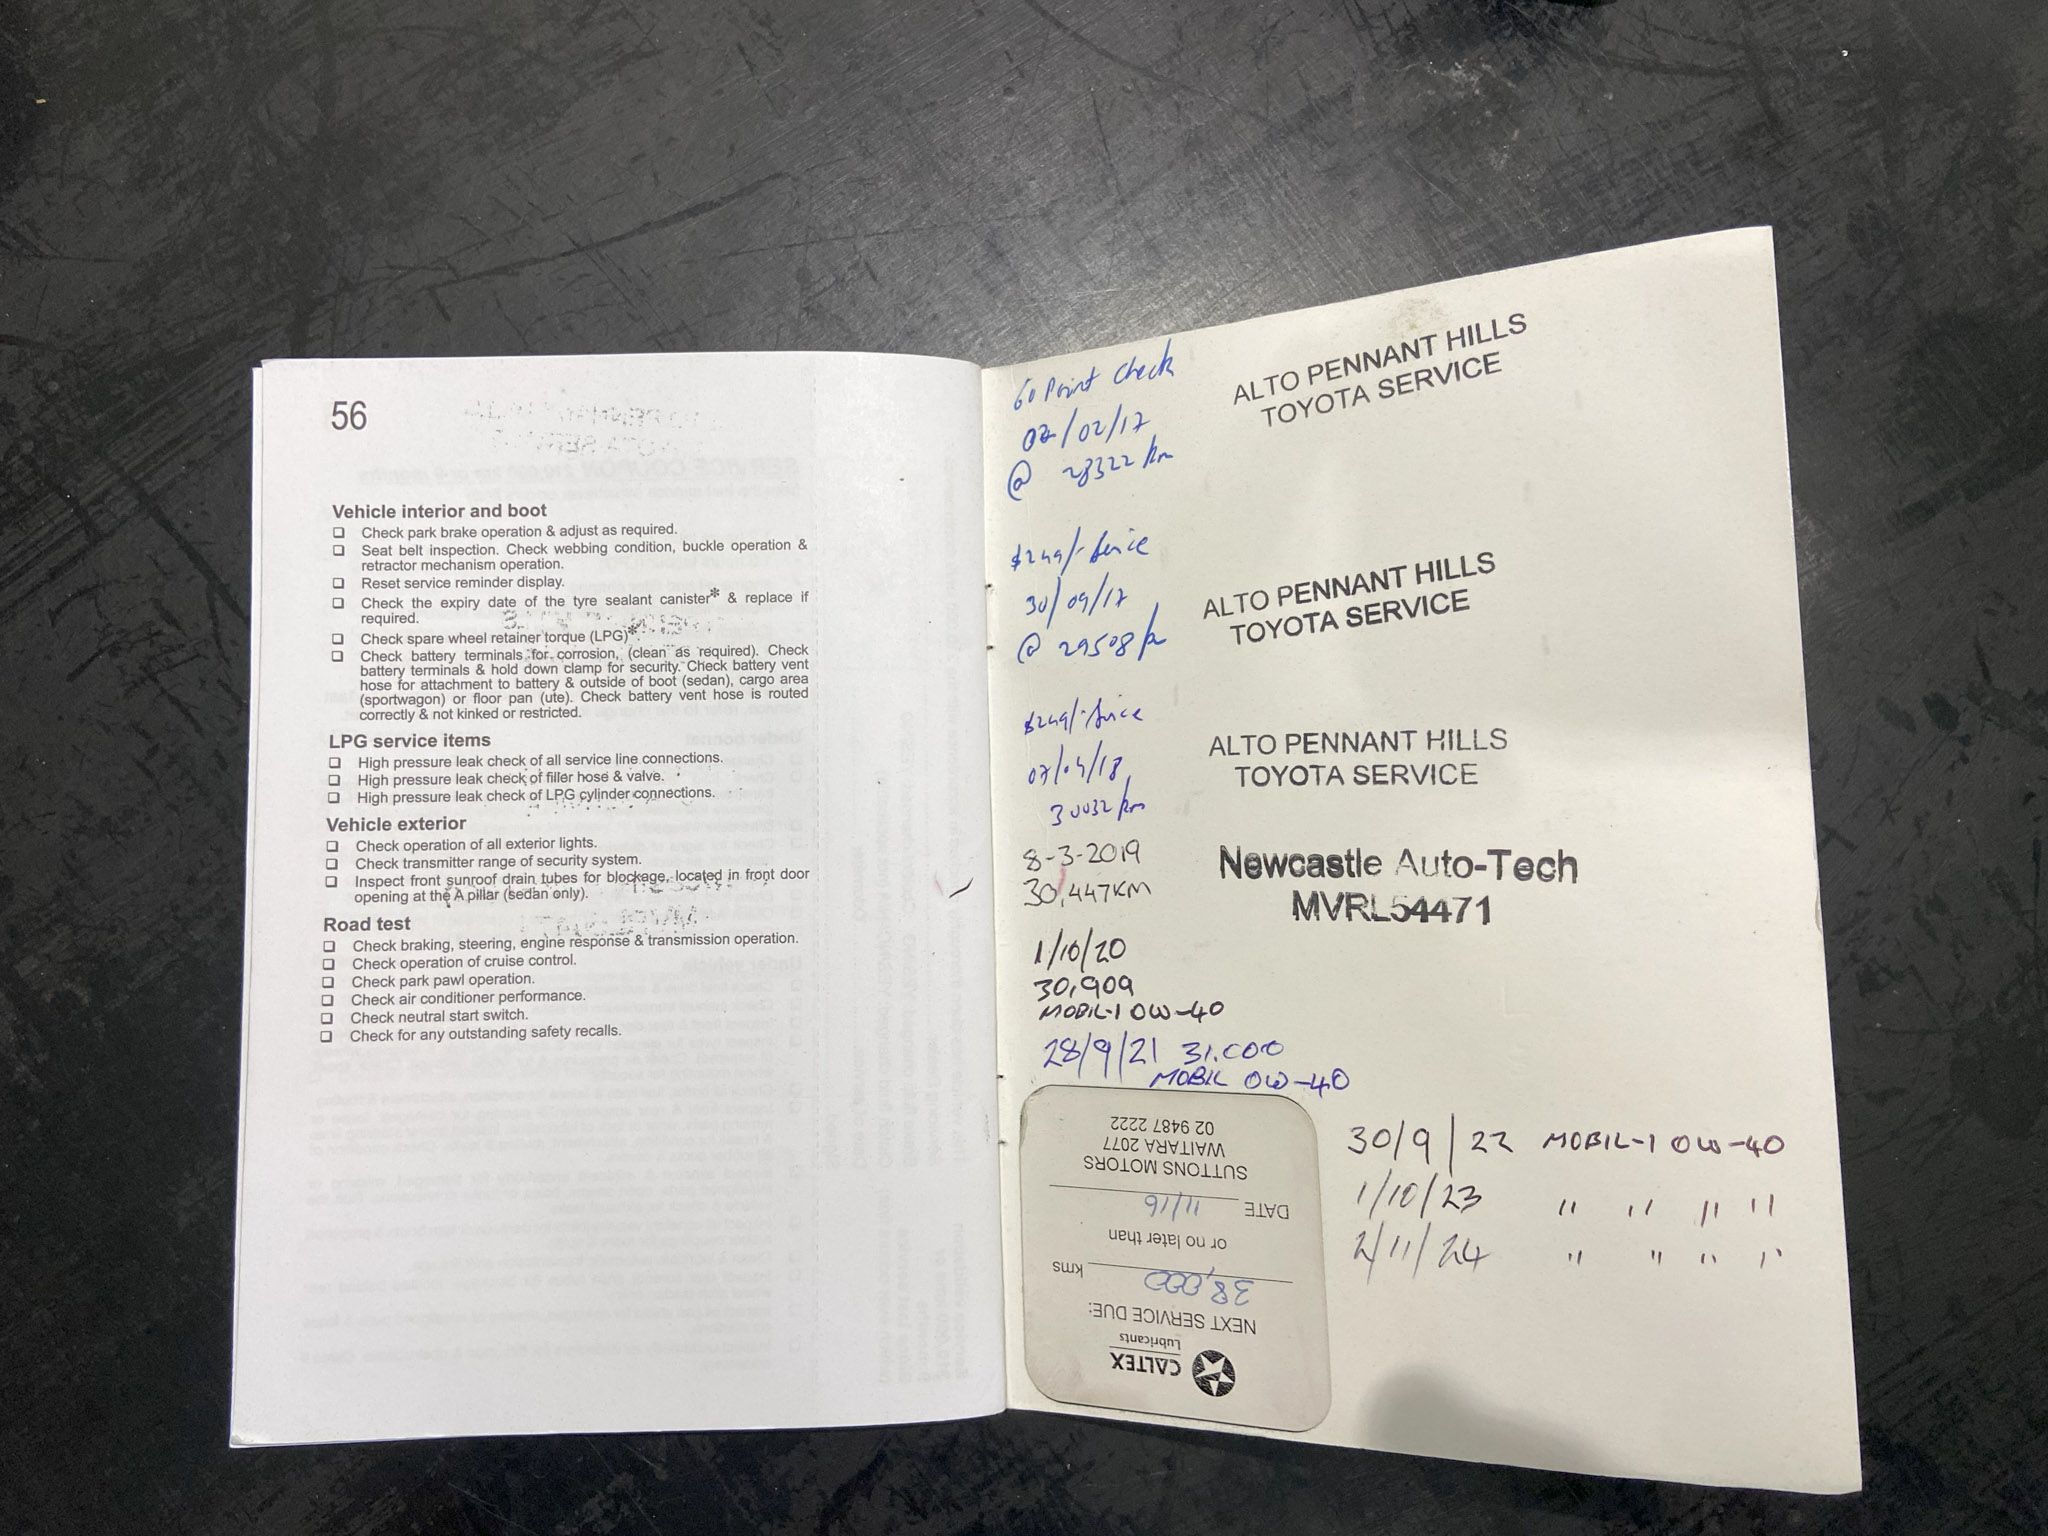 56
Vehicle interior and boot
❑ Check park brake operation & adjust as required.
❑ Seat belt inspection. Check webbing condition, buckle operation &
retractor mechanism operation.
❑ Reset service reminder display.
❑ Check the expiry date of the tyre sealant canister* & replace if
required.
❑ Check spare wheel retainer torque (LPG)*
❑ Check battery terminals for corrosion, (clean as required). Check
battery terminals & hold down clamp for security. Check battery vent
hose for attachment to battery & outside of boot (sedan), cargo area
(sportwagon) or floor pan (ute). Check battery vent hose is routed
correctly & not kinked or restricted.
LPG service items
❑ High pressure leak check of all service line connections.
❑ High pressure leak check of filler hose & valve.
❑ High pressure leak check of LPG cylinder connections.
Vehicle exterior
❑ Check operation of all exterior lights.
❑ Check transmitter range of security system.
❑ Inspect front sunroof drain tubes for blockage, located in front door
opening at the A pillar (sedan only).
Road test
❑ Check braking, steering, engine response & transmission operation.
❑ Check operation of cruise control.
❑ Check park pawl operation.
❑ Check air conditioner performance.
❑ Check neutral start switch.
❑ Check for any outstanding safety recalls.
60 Point Check
02/02/17
@ 28322 km
ALTO PENNANT HILLS
TOYOTA SERVICE
$249/- Service
30/09/17
@ 29508 km
ALTO PENNANT HILLS
TOYOTA SERVICE
$249/- Service
30032 km
ALTO PENNANT HILLS
TOYOTA SERVICE
8-3-2019
30,447KM
Newcastle Auto-Tech
MVRL54471
1/10/20
30,909
MOBIL-1 0W-40
28/9/21 31.000
MOBIL 0W-40
30/9/22 MOBIL-1 0W-40
1/10/23 " " " "
2/11/24 " " " "
CALTEX
Lubricants
NEXT SERVICE DUE:
38,000 kms
or no later than
DATE 11/16
SUTTONS MOTORS
WAITARA 2077
02 9487 2222